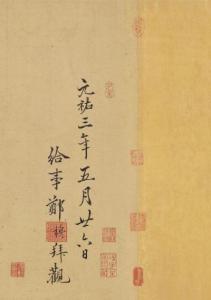 元祐三年五月廿六日
給事鄭穆拜觀